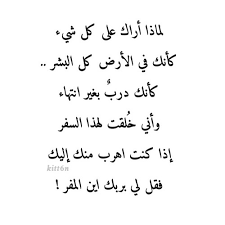 لماذا أراك على كل شيء
كأنك في الأرض كل البشر ..
كأنك دربٌ بغير انتهاء
وأني خُلقت لهذا السفر
إذا كنت اهرب منك إليك
kitt6n
فقل لي بربك اين المفر !